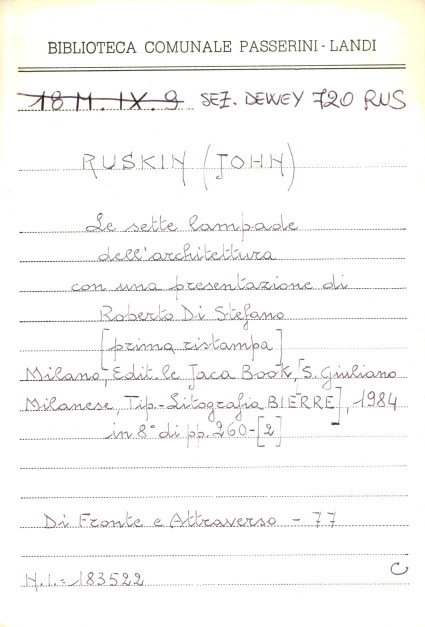 BIBLIOTECA COMUNALE PASSERINI - LANDI
18 M. IX. 9 SEZ. DEWEY 720 RUS
RUSKIN (JOHN)
Le sette lampade
dell'architettura
con una presentazione di
Roberto Di Stefano
[prima ristampa]
Milano, Edit.le Jaca Book, [S. Giuliano
Milanese, Tip.-Litografia BIERRE], 1984
in 8° di pp. 260-[2]
Di Fronte e Attraverso - 77
N.I.= 183522
C